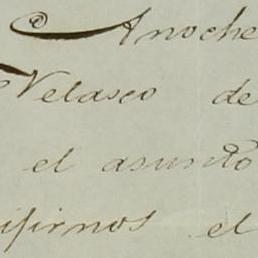 Anoche
Velasco de
el asunto
el